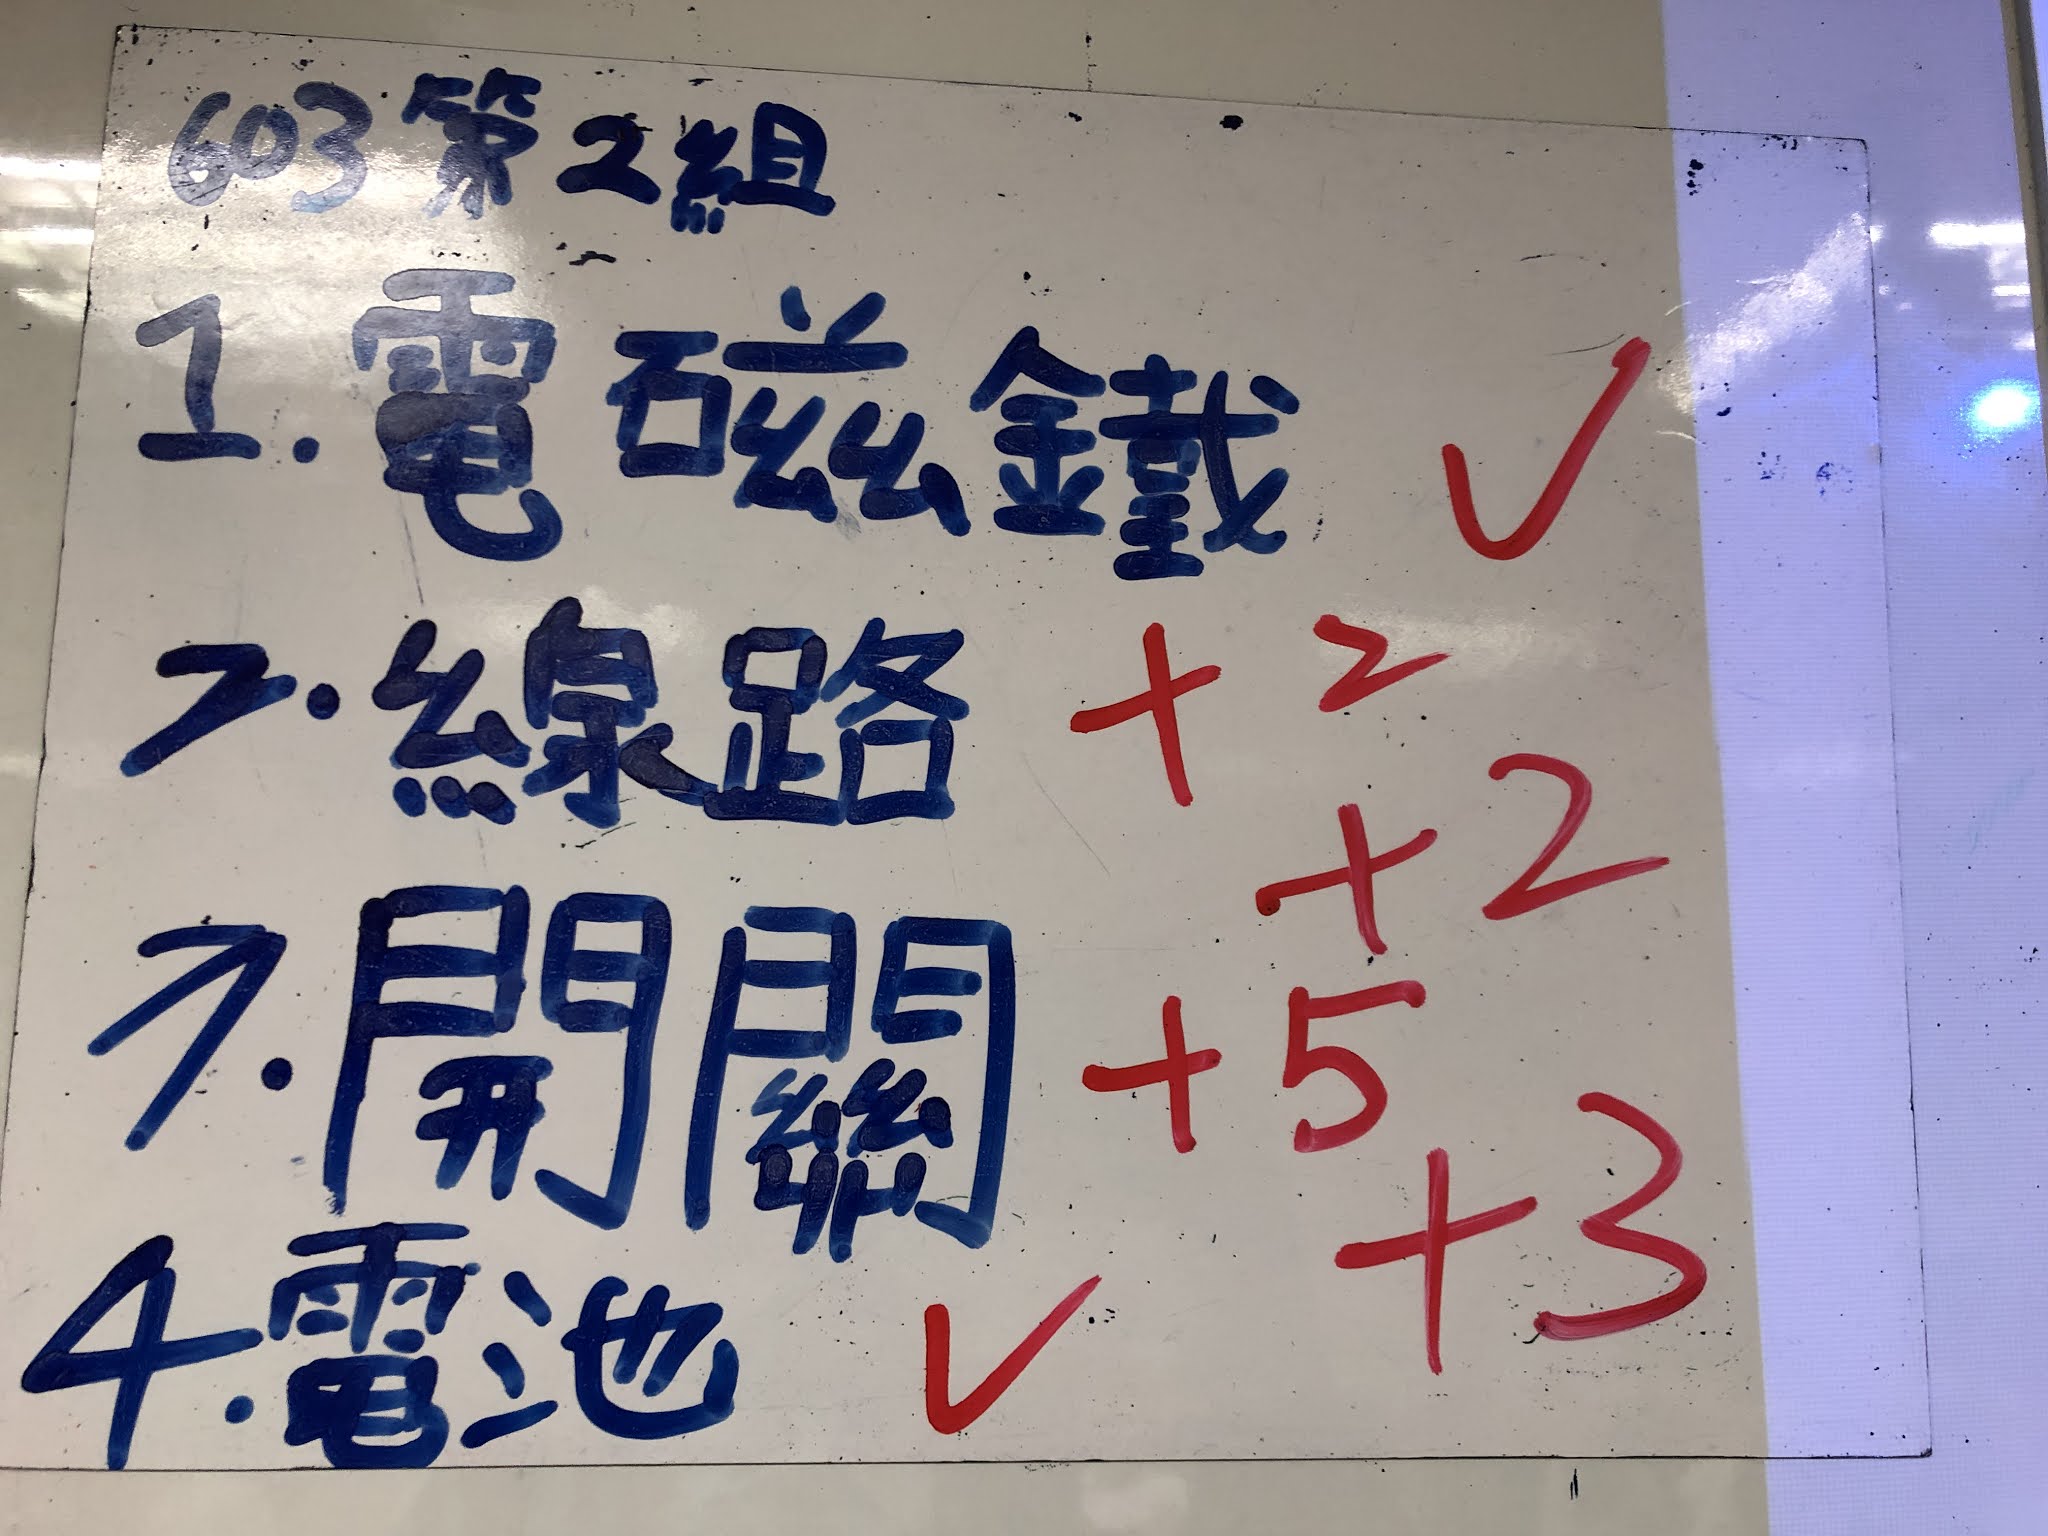 603第2組
1.電磁鐵 ✓
2.線路 +2
+2
3.開關 +5
+3
4.電池 ✓